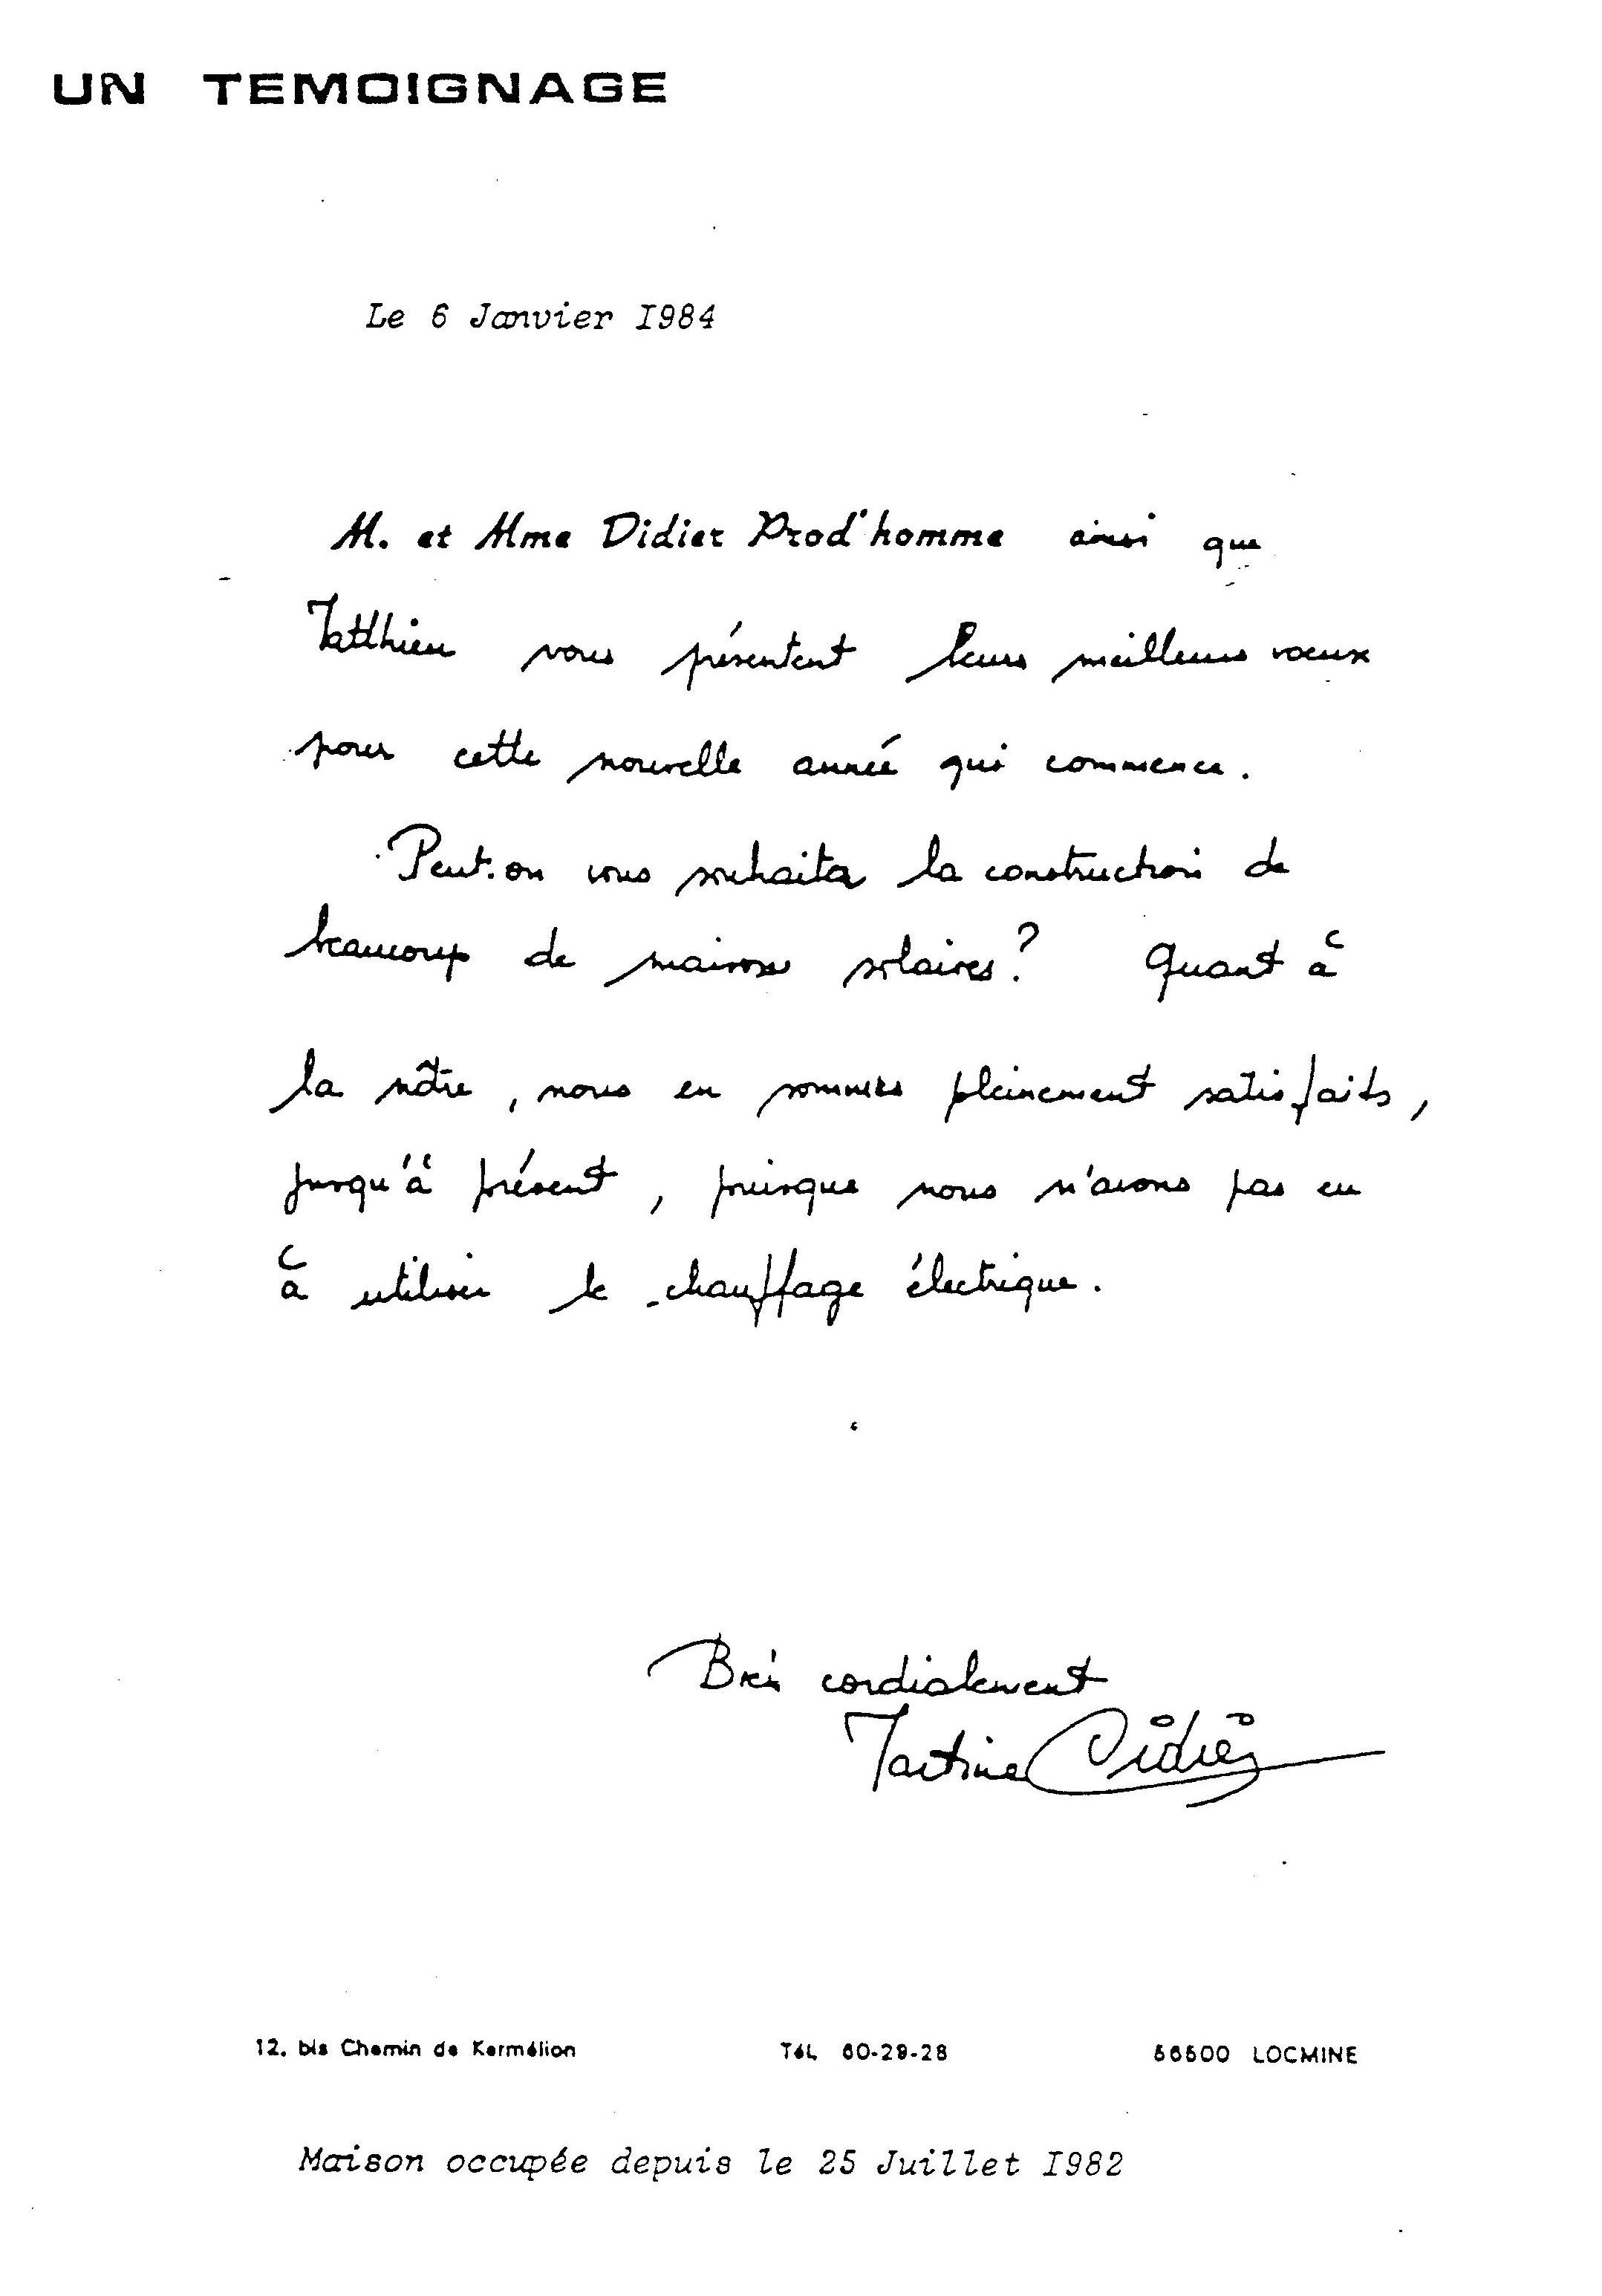 UN TEMOIGNAGE
Le 6 Janvier I984
M. et Mme Didier Prod'homme ainsi que
Matthieu vous présentent leurs meilleurs voeux
pour cette nouvelle année qui commence.
Peut-on vous souhaiter la construction de
beaucoup de maisons solaires ? Quant à
la nôtre, nous en sommes pleinement satisfaits,
jusqu'à présent, puisque nous n'avons pas eu
à utiliser le chauffage électrique.
Bien cordialement
Martine Didier
12, bis Chemin de Kermélion Tél. 60-29-28 56500 LOCMINE
Maison occupée depuis le 25 Juillet I982